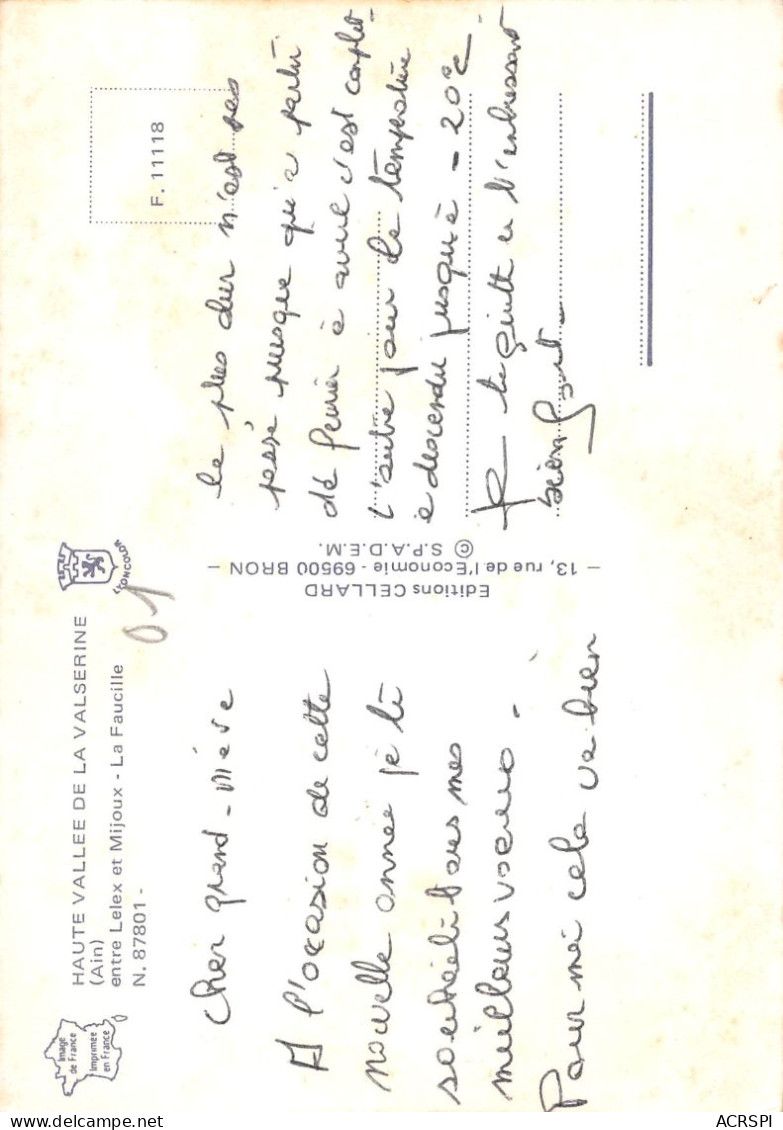 HAUTE VALLEE DE LA VALSERINE
(Ain)
entre Lelex et Mijoux - La Faucille
N. 87801 -
Image
de France
Imprimée
en France
LYONCOLOR
01
Cher grand-mère
A l'occasion de cette
nouvelle année je te
souhaite tous mes
meilleurs voeux.
Pour moi cela va bien
Editions CELLARD
— 13, rue de l'Economie - 69500 BRON —
© S.P.A.D.E.M.
F. 11118
le plus dur n'est pas
passé puisque qu'a partir
de fevrier à avril c'est complet-
l'autre jour la température
a descendu jusqu'à -20°c
Je te quitte en t'embrassant
bien fort
ACRSPI